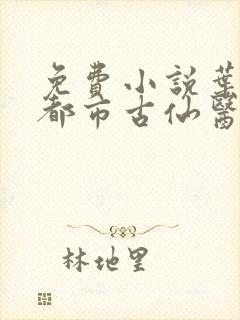 免費小說葉
都市古仙醫
林地里